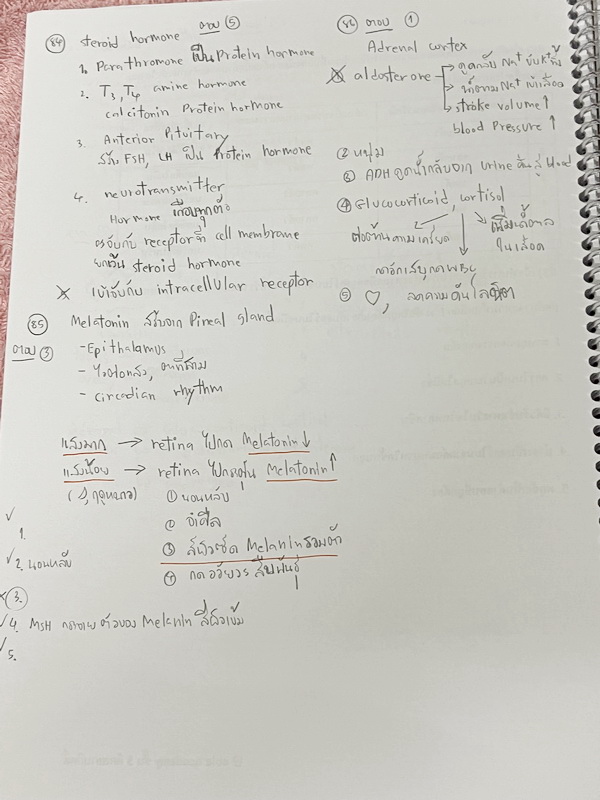 84 steroid hormone ตอบ 5
1. Parathromone เป็น Protein hormone
2. T3, T4 amine hormone
calcitonin Protein hormone
3. Anterior Pituitary
สร้าง FSH, LH เป็น Protein hormone
4. neurotransmitter
Hormone เกือบทุกตัว
จะจับกับ receptor ที่ cell membrane
ยกเว้น steroid hormone
เข้าจับกับ intracellular receptor
85 Melatonin สร้างจาก Pineal gland
ตอบ 3
- Epithalamus
- ไร้ต่อมแล้ว,
- circadian rhythm
แสงมาก → retina ไปกด Melatonin ↓
แสงน้อย → retina ไปกระตุ้น Melatonin ↑
(ฤดูหนาว) 1 นอนหลับ
2 จำศีล
3 สีผิวซีด Melanin รวมตัว
4 กดอวัยวะสืบพันธุ์
1.
2. นอนหลับ
3.
4. MSH กระจายตัวของ Melanin สีผิวเข้ม
5.
86 ตอบ 1
Adrenal cortex
aldosterone
ดูดกลับ Na+ ขับ K+ ทิ้ง
น้ำตาม Na+ เข้าเลือด
stroke volume ↑
blood Pressure ↑
2 หนุ่ม
3 ADH ดูดน้ำกลับจาก urine คืนสู่ blood
4 Glucocorticoid, cortisol
ต่อต้านความเครียด
เพิ่มน้ำตาล
ในเลือด
WBC
5 ♡, ลดความดันโลหิต